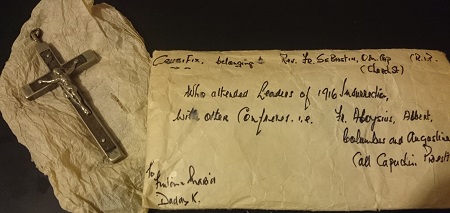 Crucifix. belonging to Rev. Fr. Sebastian, O.M. Cap (R.I.P.
(Church St)
Who attended Leaders of 1916 Insurrection,
with other Confreres. i.e. Fr. Aloysius, Albert,
Columbus and Augustine
(all Capuchin Priests
To
Daddy K.